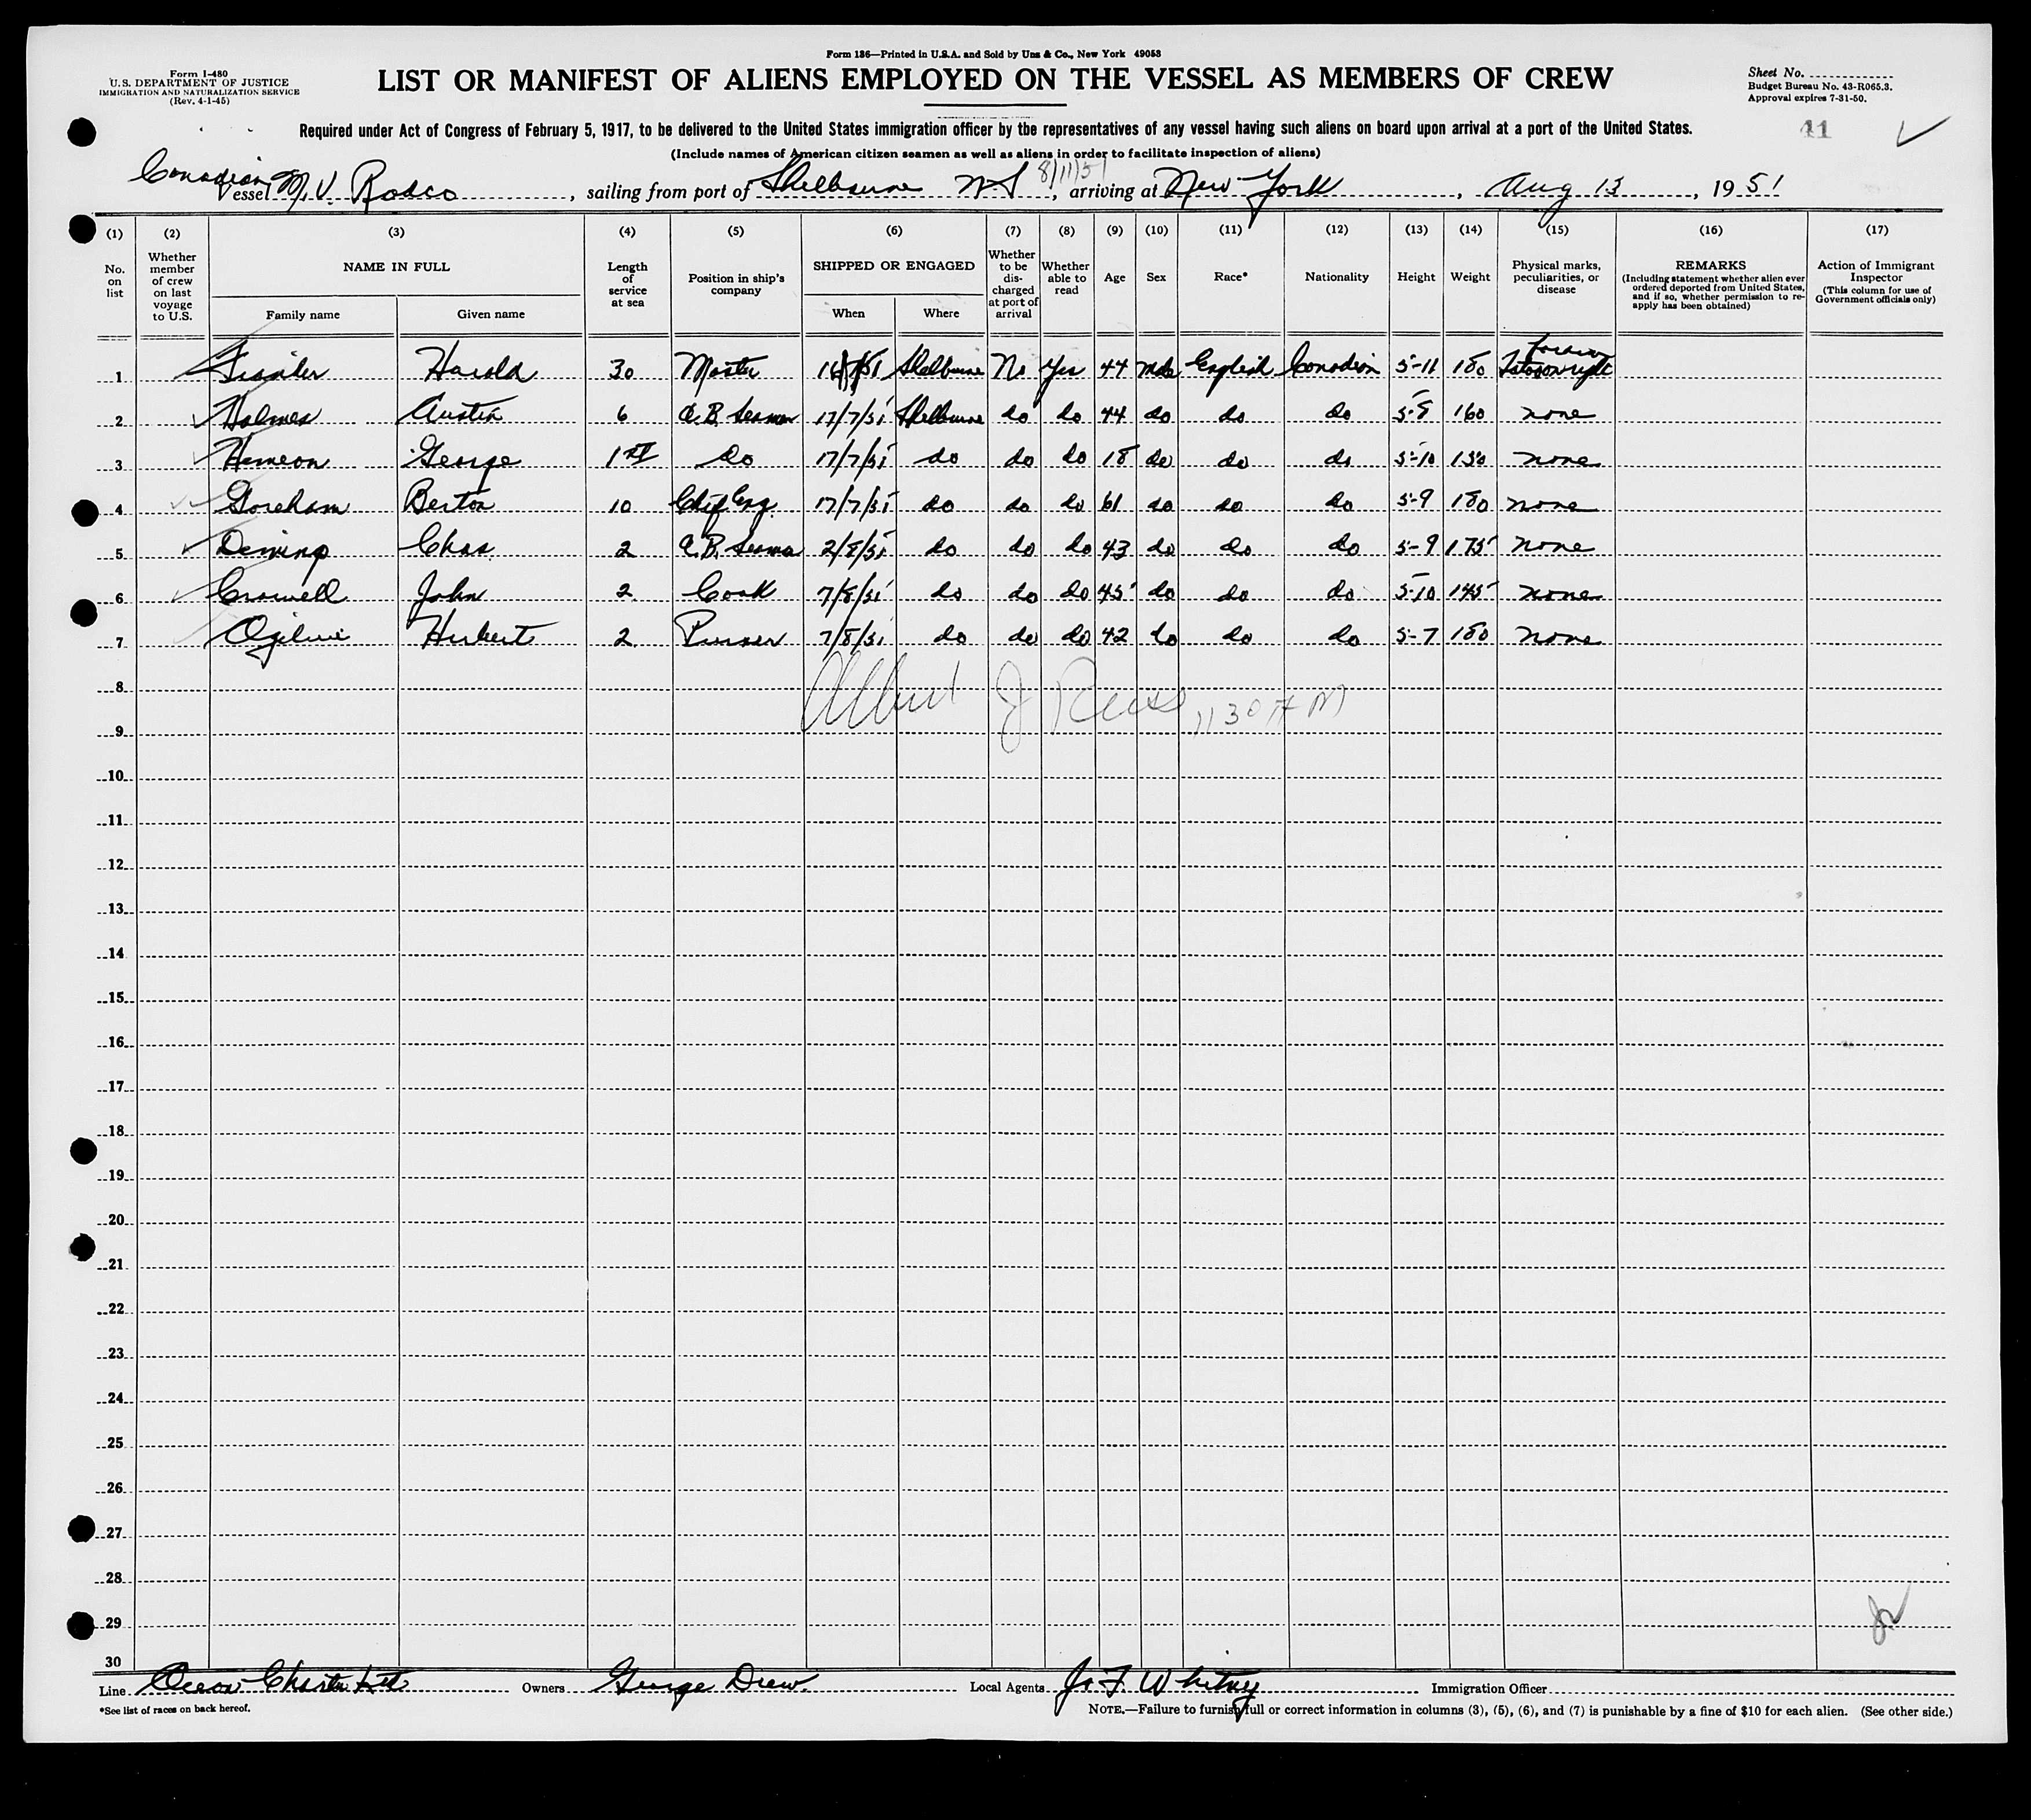 Form 136—Printed in U.S.A. and Sold by Unz & Co., New York 49053
Form I-480
U.S. DEPARTMENT OF JUSTICE
IMMIGRATION AND NATURALIZATION SERVICE
(Rev. 4-1-45)
LIST OR MANIFEST OF ALIENS EMPLOYED ON THE VESSEL AS MEMBERS OF CREW
Sheet No.
Budget Bureau No. 43-R065.3.
Approval expires 7-31-50.
Required under Act of Congress of February 5, 1917, to be delivered to the United States immigration officer by the representatives of any vessel having such aliens on board upon arrival at a port of the United States.
41
(Include names of American citizen seamen as well as aliens in order to facilitate inspection of aliens)
Canadian
Vessel M.V. Rodco, sailing from port of Shelburne N S 8/11/51, arriving at New York, Aug 13, 1951
(1) (2) (3) (4) (5) (6) (7) (8) (9) (10) (11) (12) (13) (14) (15) (16) (17)
No. on list
Whether member of crew on last voyage to U.S.
NAME IN FULL
Family name Given name
Length of service at sea
Position in ship's company
SHIPPED OR ENGAGED
When Where
Whether to be discharged at port of arrival
Whether able to read
Age
Sex
Race*
Nationality
Height
Weight
Physical marks, peculiarities, or disease
REMARKS
(Including statement whether alien ever ordered deported from United States, and if so, whether permission to re-apply has been obtained)
Action of Immigrant Inspector
(This column for use of Government officials only)
1 Harold 30 Master Shelburne No Yes 44 Male English Canadian 5-11 180
2 Holmes Austin 6 A.B. Seaman 17/7/51 Shelburne do do 44 do do do 5-8 160 none
3 Hemeon George 1st do 17/7/51 do do do 18 do do do 5-10 130 none
4 Goreham Berton 10 Chief Eng. 17/7/51 do do do 61 do do do 5-9 180 none
5 Deming Chas 2 A.B. Seaman 2/8/51 do do do 43 do do do 5-9 175 none
6 Crowell John 2 Cook 7/8/51 do do do 45 do do do 5-10 145 none
7 Ogilvie Herbert 2 Purser 7/8/51 do do do 42 do do do 5-7 180 none
8 Albert J 11 30 AM
9
10
11
12
13
14
15
16
17
18
19
20
21
22
23
24
25
26
27
28
29
30
Line Ocean Charter Ltd Owners George Drew Local Agents J. F. Whitney Immigration Officer
*See list of races on back hereof.
NOTE.—Failure to furnish full or correct information in columns (3), (5), (6), and (7) is punishable by a fine of $10 for each alien. (See other side.)